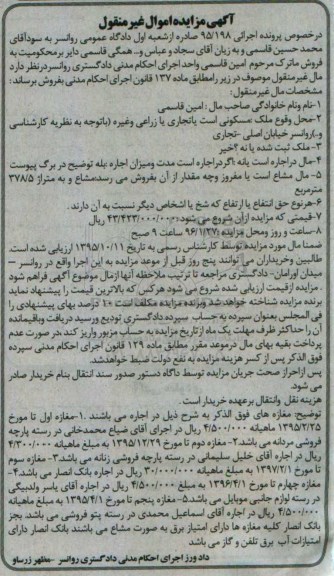 آگهی مزایده اموال غیرمنقول
درخصوص پرونده اجرائی ۹۵/۱۹۸ صادره ازشعبه اول دادگاه عمومی روانسر به سودآقای
محمد حسین قاسمی و به زیان آقای سجاد و عباس و.. همگی قاسمی دایر برمحکومیت به
فروش ماترک مرحوم امین قاسمی واحد اجرای احکام مدنی دادگستری روانسردرنظر دارد
مال غیرمنقول موصوف در زیر رامطابق ماده ۱۳۷ قانون اجرای احکام مدنی بفروش برساند:
مشخصات مال غیرمنقول:
۱-نام ونام خانوادگی صاحب مال : امین قاسمی
۲-محل وقوع ملک :مسکونی است یاتجاری یا زراعی وغیره (باتوجه به نظریه کارشناسی
و..)روانسر خیابان اصلی -تجاری
۳-ملک ثبت شده یا نه ؟خیر
۴-مال دراجاره است یانه ؟گردراجاره است مدت ومیزان اجاره :بله توضیح در برگ پیوست
۵-مال مشاع است یا مفروز وچه مقدار از آن بفروش می رسد:مشاع و به متراژ ۳۷۸/۵
مترمربع
۶-هرنوع حق انتفاع یا ارتفاع که شخ یا اشخاص دیگر نسبت به آن دارند.
۷-قیمتی که مزایده ازآن شروع می شود: ۴۳/۴۲۳/۰۰۰/۰۰۰ ریال
۸-ساعت و روز ومحل مزایده: ۹۶/۱/۲۷ ساعت ۹ صبح
ضمنا مال مورد مزایده توسط کارشناس رسمی به تاریخ ۱۳۹۵/۱۰/۱۱ ارزیابی شده است.
طالبین وخریداران می توانند پنج روز قبل از موعد مزایده به این اجرا واقع در روانسر –
میدان اورامان- دادگستری مراجعه تا ترتیب ملاحظه آنها ازمال موضوع آگهی فراهم شود
. مزایده ازقیمت ارزیابی شده شروع می شود هرکس که بالاترین قیمت را پیشنهاد نماید
برنده مزایده شناخته خواهدشد وبرنده مزایده مکلف است ۱۰ درصد بهای پیشنهادی را
فی المجلس بعنوان سپرده به حساب سپرده دادگستری تودیع ورسید دریافت وباقیمانده
آن را حداکثر ظرف مهلت یک ماه ازتاریخ مزایده به حساب مزبور واریز کند.در صورت عدم
پرداخت بقیه بهای مال درموعد مقرر مطابق ماده ۱۲۹ قانون اجرای احکام مدنی سپرده
فوق الذکر پس از کسر هزینه مزایده به نفع دولت ضبط خواهدشد.
پس ازاحراز صحت جریان مزایده توسط داگاه دستور صدور سند انتقال بنام خریدار صادر
می شود.
هزینه نقل وانتقال برعهده خریدار است.
توضیح: مغازه های فوق الذکر به شرح ذیل در اجاره می باشند .۱-مغازه اول تا مورخ
۱۳۹۵/۲/۲۵ ماهیانه ۴/۵۰۰/۰۰۰ ریال در اجرای آقای ضیاع محمدخانی در رسته پارچه
فروشی مردانه می باشد.۲- مغازه دوم تا مورخ ۱۳۹۵/۱۲/۲۹ به مبلغ ماهیانه ۴/۳۰۰/۰۰۰
ریال در اجاره آقای خلیل سلیمانی در رسته پارچه فروشی زنانه می باشد.۳- مغازه سوم
تا مورخ ۱۳۹۷/۲/۱ به مبلغ ماهیانه ۳۰/۰۰۰/۰۰۰ ریال در اجاره بانک انصار می باشد.۴-
مغازه چهارم تا مورخ ۱۳۹۶/۴/۱ به مبلغ ۴/۵۰۰/۰۰۰ ریال در اجاره آقای یاسر ولدبیگی
در رسته لوازم جانبی موبایل می باشد.۵- مغازه پنجم تا مورخ ۱۳۹۵/۴/۱ به مبلغ ماهیانه
۴/۵۰۰/۰۰۰ ریال در اجاره آقای اسماعیل محمدی در رسته پتو فروشی می باشد. بجز
بانک انصار کلیه مغازه ها دارای امتیاز برق به صورت مشاع می باشند بانک انصار دارای
امتیازات آب برق تلفن و گاز می باشد
داد ورز اجرای احکام مدنی دادگستری روانسر –مظهر زرساو